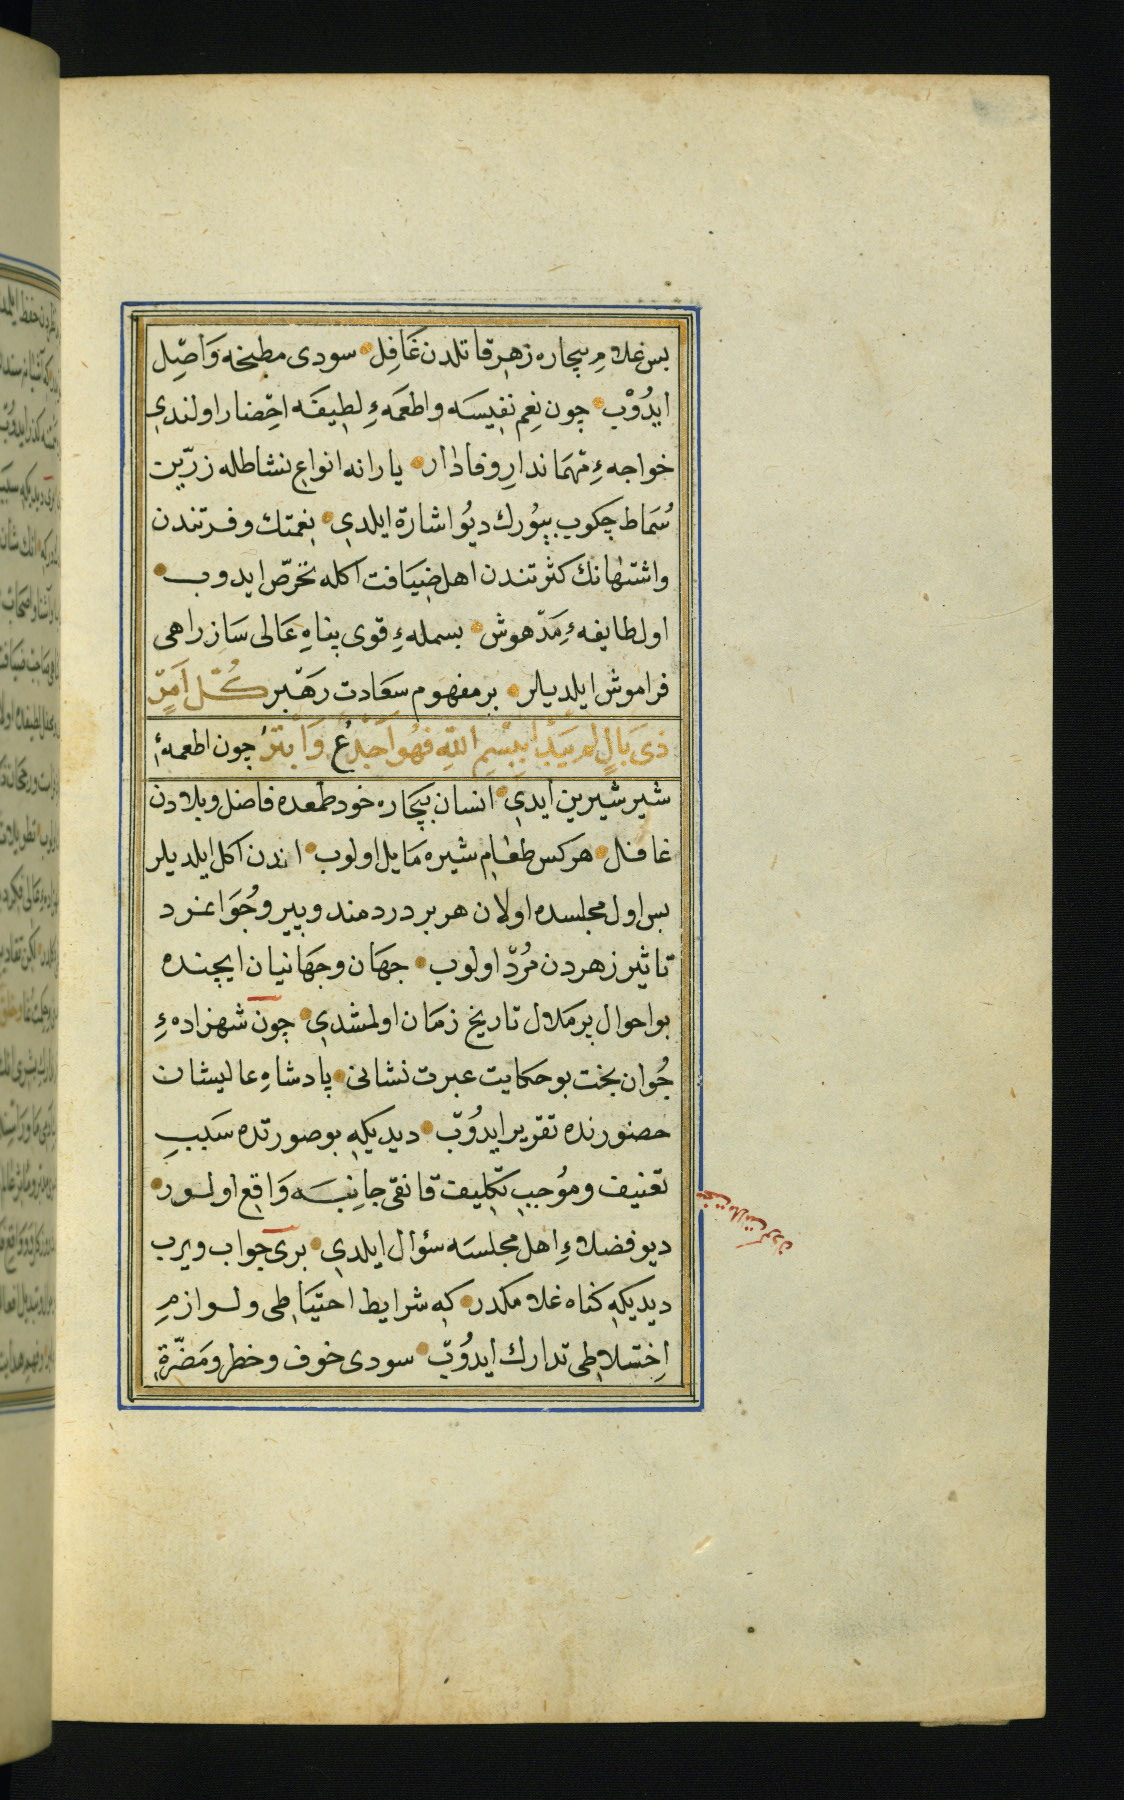 بس غلامِ بیچاره زهرِ قاتلدن غافِل سودی مطبخه وَاصِل
ایدُوْب چون نِعمِ نفیسَه و اطعمَهءِ لطیفَه احِضار اولندیِ
خواجهءِ مهماندارِ وفادار یارانه انواعِ نشاطله زرّین
سُماط چکوب بیوُرك دیُو اشارة ایلدیِ نِعمتك وفرتندن
واشتهانك کثرتندن اهل ضِیَافت اکله تخرّص ایدوب
اول طایفهءِ مَدْهوش بسملهءِ قوی پناهِ عَالی سَازِ راهی
فراموش ایلدیلر بر مفهوم سعَادت رَهْبر كُلّ اَمْرٍ
ذی بَالٍ لم یَبْدأ بِبِسْمِ اللهِ فَهُوَ اَجْذَعُ وَاَبْتَرُ چون اطعمهءِ
شیر شیرین ایدیِ انسان بیچاره خود طمعده فاضل وبلادن
غافل هر کس طعَامِ شیره مَایل اولوب اندن اکل ایلدیلر
بس اول مجلسده اولان هر بر دردمند وپیر وجُوَانمرد
تاثیر زهردن مُردْ اولوب جهَان وجهَانیان ایچنده
بو احوال پر مَلال تاریخ زمَان اولمشدیِ چون شهزادهءِ
جُوان بخت بو حکایت عبرت نشانی پادشاهِ عالیشان
حضورنده تقریر ایدُوْب دیدیکهِ بو صورتده سَببِ
تعنیف ومُوجبِ تکلیف قانغی جانِبَه وَاقع اولور
دیو فضلاءِ اهل مجلسَه سؤال ایلدیِ بری جواب ویرب
دیدیکهِ کناه غلامكدر که شرایط احتیَاطی ولوازمِ
اِختلاطی تدارك ایدُوْب سودی خوف وخطر ومَضَرّة